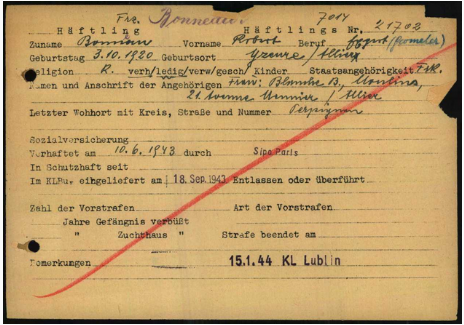 Frz. Bonneau. 7014
Häftling Häftlings Nr. 21702
Zuname Vorname Robert Beruf
Geburtstag 3.10.1920 Geburtsort Yzeure /Allier
Religion R. verh/ledig/verw/gesch/ Kinder Staatsangehörigkeit
Namen und Anschrift der Angehörigen Frau: Blanche B., Moulins,
21 Avenue /Allier
Letzter Wohnort mit Kreis, Straße und Nummer Perpignan
Sozialversicherung
Verhaftet am 10.6.1943 durch Sipo Paris
In Schutzhaft seit
Im KLBu. eingeliefert am 18. Sep. 1943 Entlassen oder überführt
Zahl der Vorstrafen Art der Vorstrafen
Jahre Gefängnis verbüßt
" Zuchthaus " Strafe beendet am
Bemerkungen 15.1.44 KL Lublin